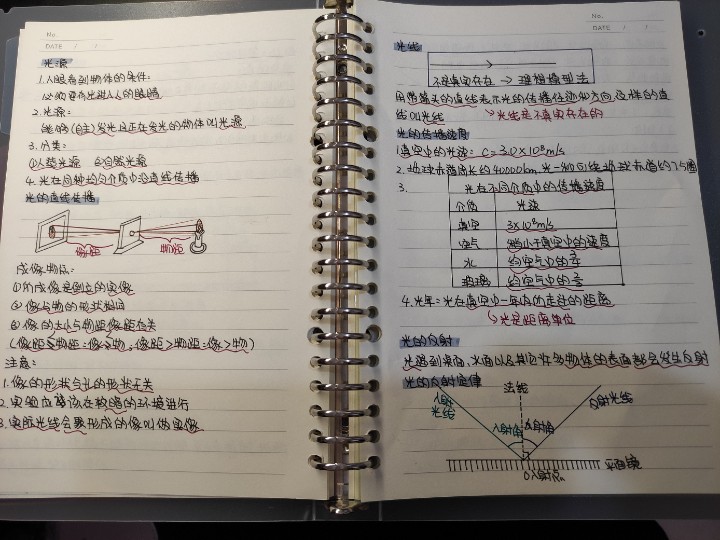 No.
DATE / /
光源
1.人眼看到物体的条件:
必须要有光进入人的眼睛
2.光源:
能够(自主)发光且正在发光的物体叫光源
3.分类:
①人造光源 ②自然光源
4.光在同种均匀介质中沿直线传播
光的直线传播
像距 物距
成像物点:
①所成像是倒立的实像
②像与物的形状相同
③像的大小与物距像距有关
(像距<物距:像<物,像距>物距:像>物)
注意:
1.像的形状与孔的形状无关
2.实验应该在较暗的环境进行
3.实际光线会聚形成的像叫做实像
No.
DATE / /
光线
不是真实存在 → 理想模型法
用带箭头的直线表示光的传播径迹和方向,这样的直
线叫光线 光线是不真实存在的
光的传播速度
1.真空中的光速:C=3.0×10⁸m/s
2.地球赤道周长约40000km.光一秒可绕地球赤道约7.5圈
3.
光在不同介质中的传播速度
介质 光速
真空 3×10⁸m/s
空气 略小于真空中的速度
水 约空气中的3/4
玻璃 约空气中的2/3
4.光年:光在真空中一年内所走过的距离
光是距离单位
光的反射
光遇到桌面、水面以及其它许多物体的表面都会发生反射
光的反射定律
入射光线 法线 反射光线
入射角 反射角
平面镜
O入射点